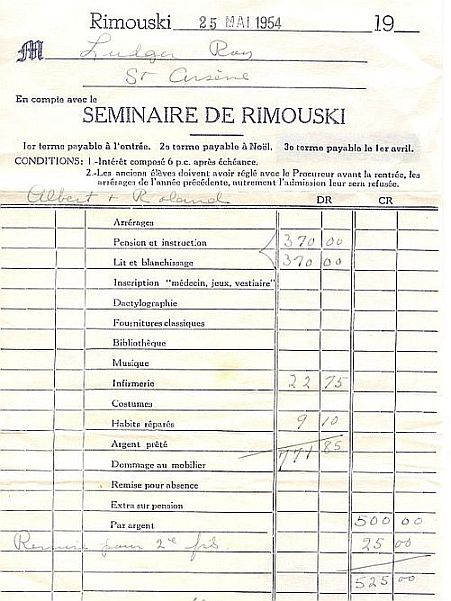 Rimouski 25 MAI 1954 19
M Ludger Roy
St Arsène
En compte avec le
SEMINAIRE DE RIMOUSKI
1er terme payable à l'entrée. 2e terme payable à Noël. 3e terme payable le 1er avril.
CONDITIONS: 1.-Intérêt composé 6 p.c. après échéance.
2.-Les anciens élèves doivent avoir réglé avec le Procureur avant la rentrée, les
arrérages de l'année précédente, autrement l'admission leur sera refusée.
Albert + Roland DR CR
Arrérages
Pension et instruction 370 00
Lit et blanchissage 370 00
Inscription "médecin, jeux, vestiaire"
Dactylographie
Fournitures classiques
Bibliothèque
Musique
Infirmerie 22 75
Costumes
Habits réparés 9 10
Argent prêté
771 85
Dommage au mobilier
Remise pour absence
Extra sur pension
Par argent 500 00
Remise pour 2e fils. 25 00
525 00